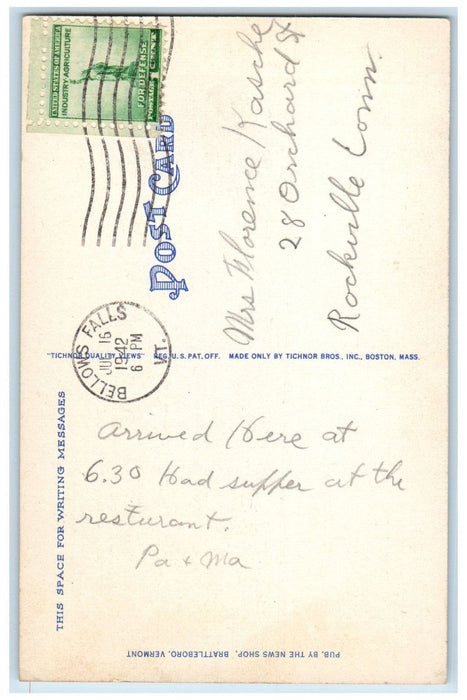 UNITED STATES OF AMERICA
INDUSTRY AGRICULTURE
FOR DEFENSE
POSTAGE 1 CENT
POST CARD
Mrs Florence Kasche
28 Orchard St
Rockville Conn.
BELLOWS FALLS
16
1942
6 PM
VT.
"TICHNOR QUALITY VIEWS" REG. U. S. PAT. OFF. MADE ONLY BY TICHNOR BROS., INC., BOSTON, MASS.
THIS SPACE FOR WRITING MESSAGES
Arrived Here at
6.30 Had supper at the
resturant.
Pa + Ma
PUB. BY THE NEWS SHOP, BRATTLEBORO, VERMONT